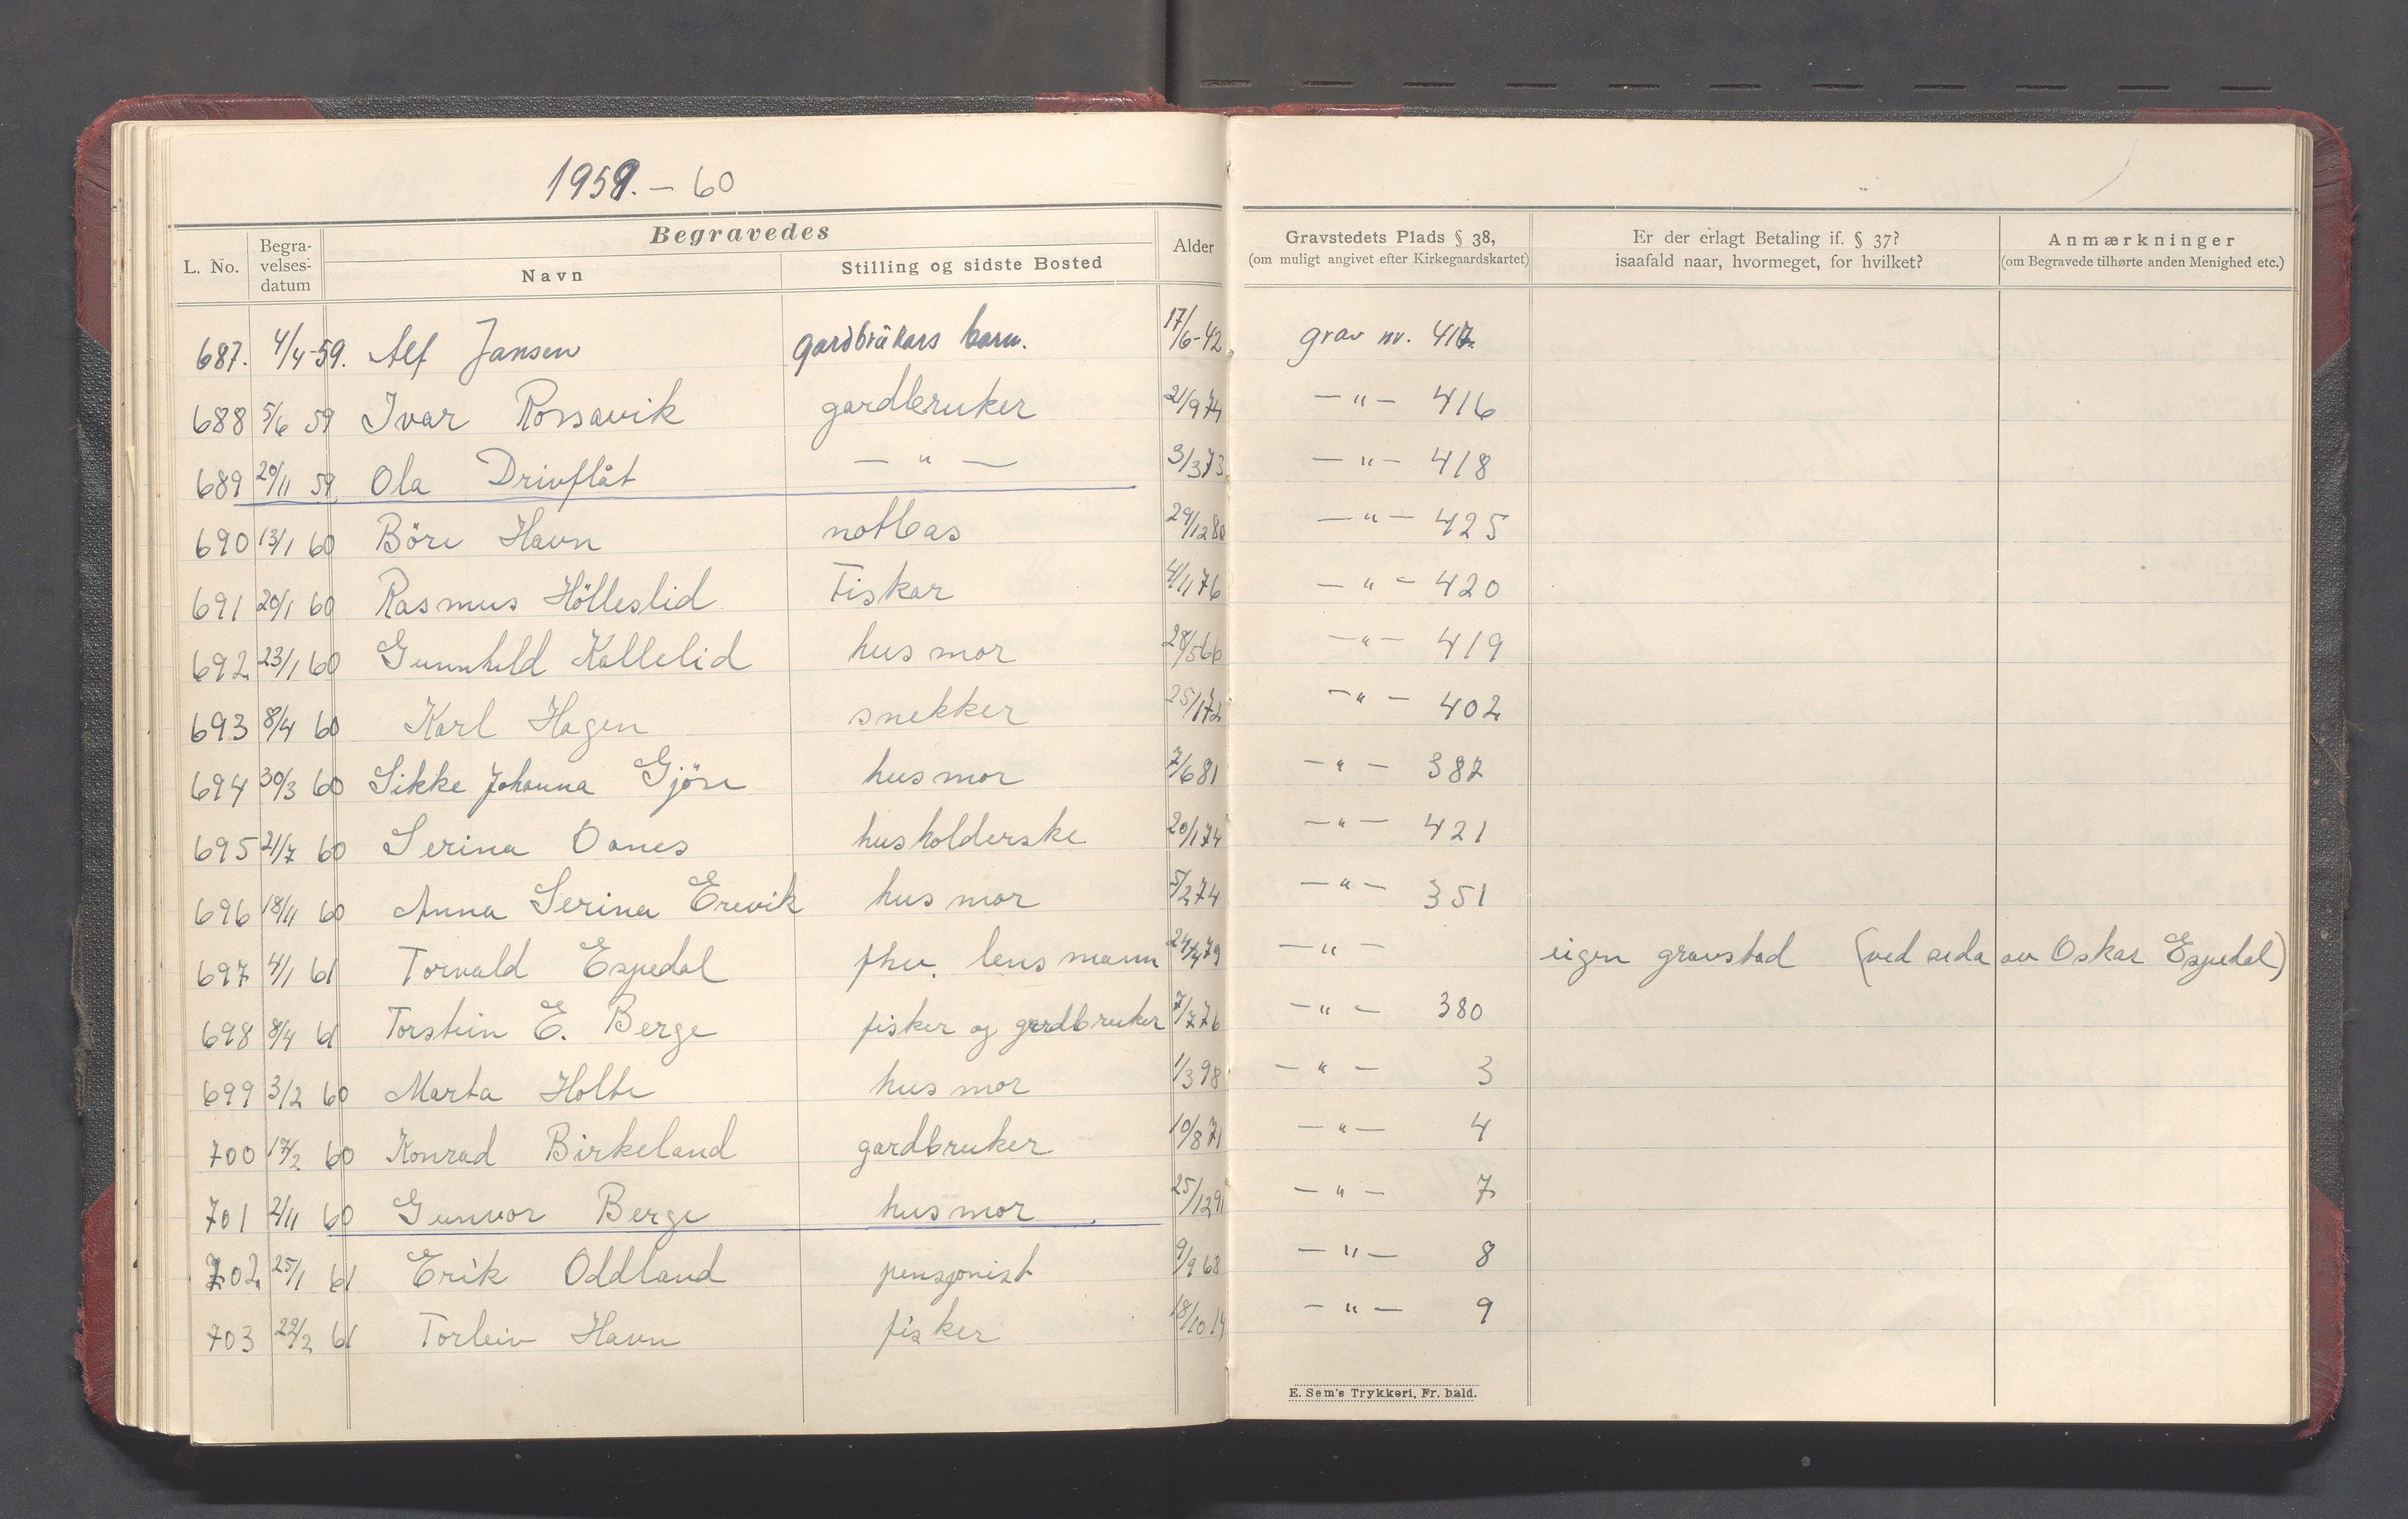 1959. – 60
Begravedes
L. No. Begravelsesdatum Navn Stilling og sidste Bosted Alder Gravstedets Plads § 38, (om muligt angivet efter Kirkegaardskartet) Er der erlagt Betaling if. § 37? isaafald naar, hvormeget, for hvilket? Anmærkninger (om Begravede tilhørte anden Menighed etc.)
687. 4/4-59. Alf Jansen gardbrukars barn. 17/6-42 grav nr. 417
688 5/6 59 Ivar Rossavik gardbruker 21/9 74 – " – 416
689 20/11 59 Ola Drivflåt – " – 3/3 73 – " – 418
690 13/1 60 Böre Havn notbas 29/12 80 – " – 425
691 20/1 60 Rasmus Hölleslid Fiskar 4/11 76 – " – 420
692 23/1 60 Gunnhild Kallelid husmor 28/5 66 – " – 419
693 8/4 60 Karl Hagen snekker 25/1 72 – " – 402
694 30/3 60 Sikke Johanna Gjöse husmor 7/6 81 – " – 387
695 21/7 60 Serina Oanes husholderske 20/1 74 – " – 421
696 18/11 60 Anna Serina Erevik husmor 5/2 74 – " – 351
697 4/1 61 Torvald Espedal fhv. lensmann 24/4 79 – " – eigen gravstad (ved sida av Oskar Espedal)
698 8/4 61 Torstein E. Berge fisker og gardbruker 7/7 76 – " – 380
699 3/2 60 Marta Holte husmor 1/3 98 – " – 3
700 17/2 60 Konrad Birkeland gardbruker 10/8 71 – " – 4
701 2/11 60 Gunvor Berge husmor 25/12 91 – " – 7
702 25/1 61 Erik Oddland pensjonist 9/9 68 – " – 8
703 22/2 61 Torleiv Havn fisker 18/10 14 – " – 9
E. Sem's Trykkeri, Fr. hald.